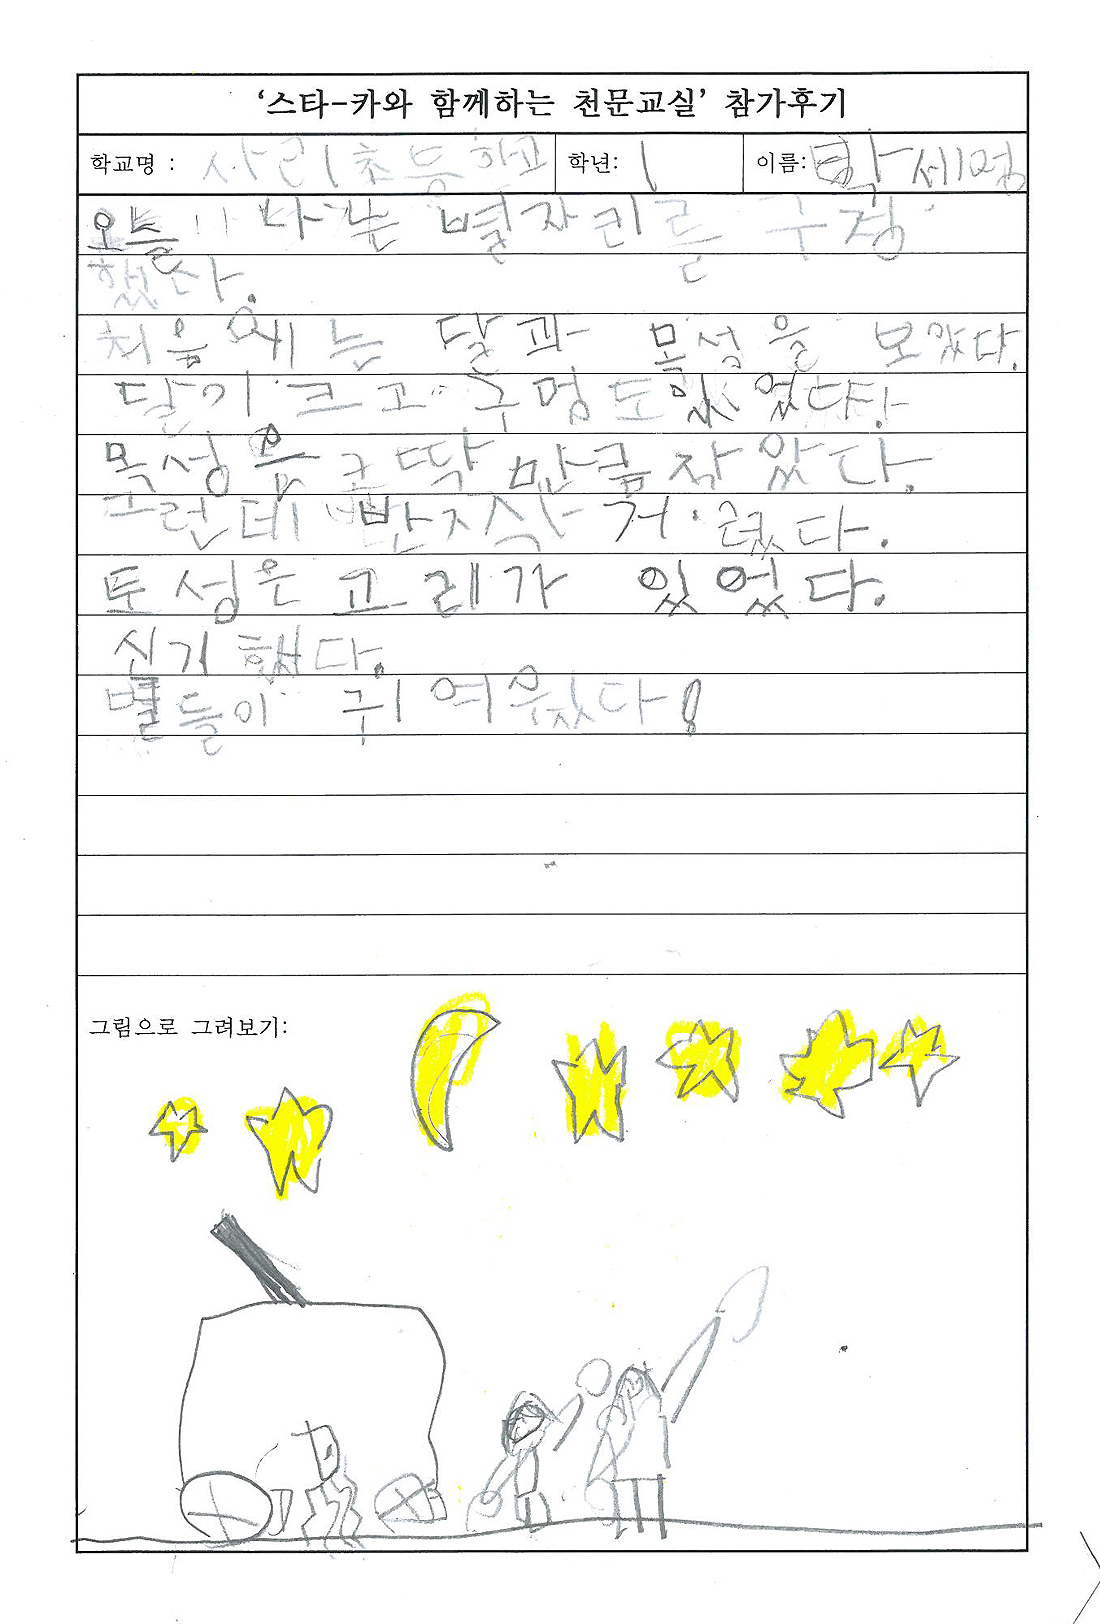 '스타-카와 함께하는 천문교실' 참가후기
학교명 : 사리초등학교 학년: 1 이름: 박세영
오늘 나는 별자리를 구경
했다.
처음에는 달과 목성을 보았다.
달이 크고 구멍도 있었다.
목성은 코딱만큼 작았다.
그런데 반지작거렸다.
토성은 고레가 있었다.
신기했다.
별들이 귀여웠다!
그림으로 그려보기: